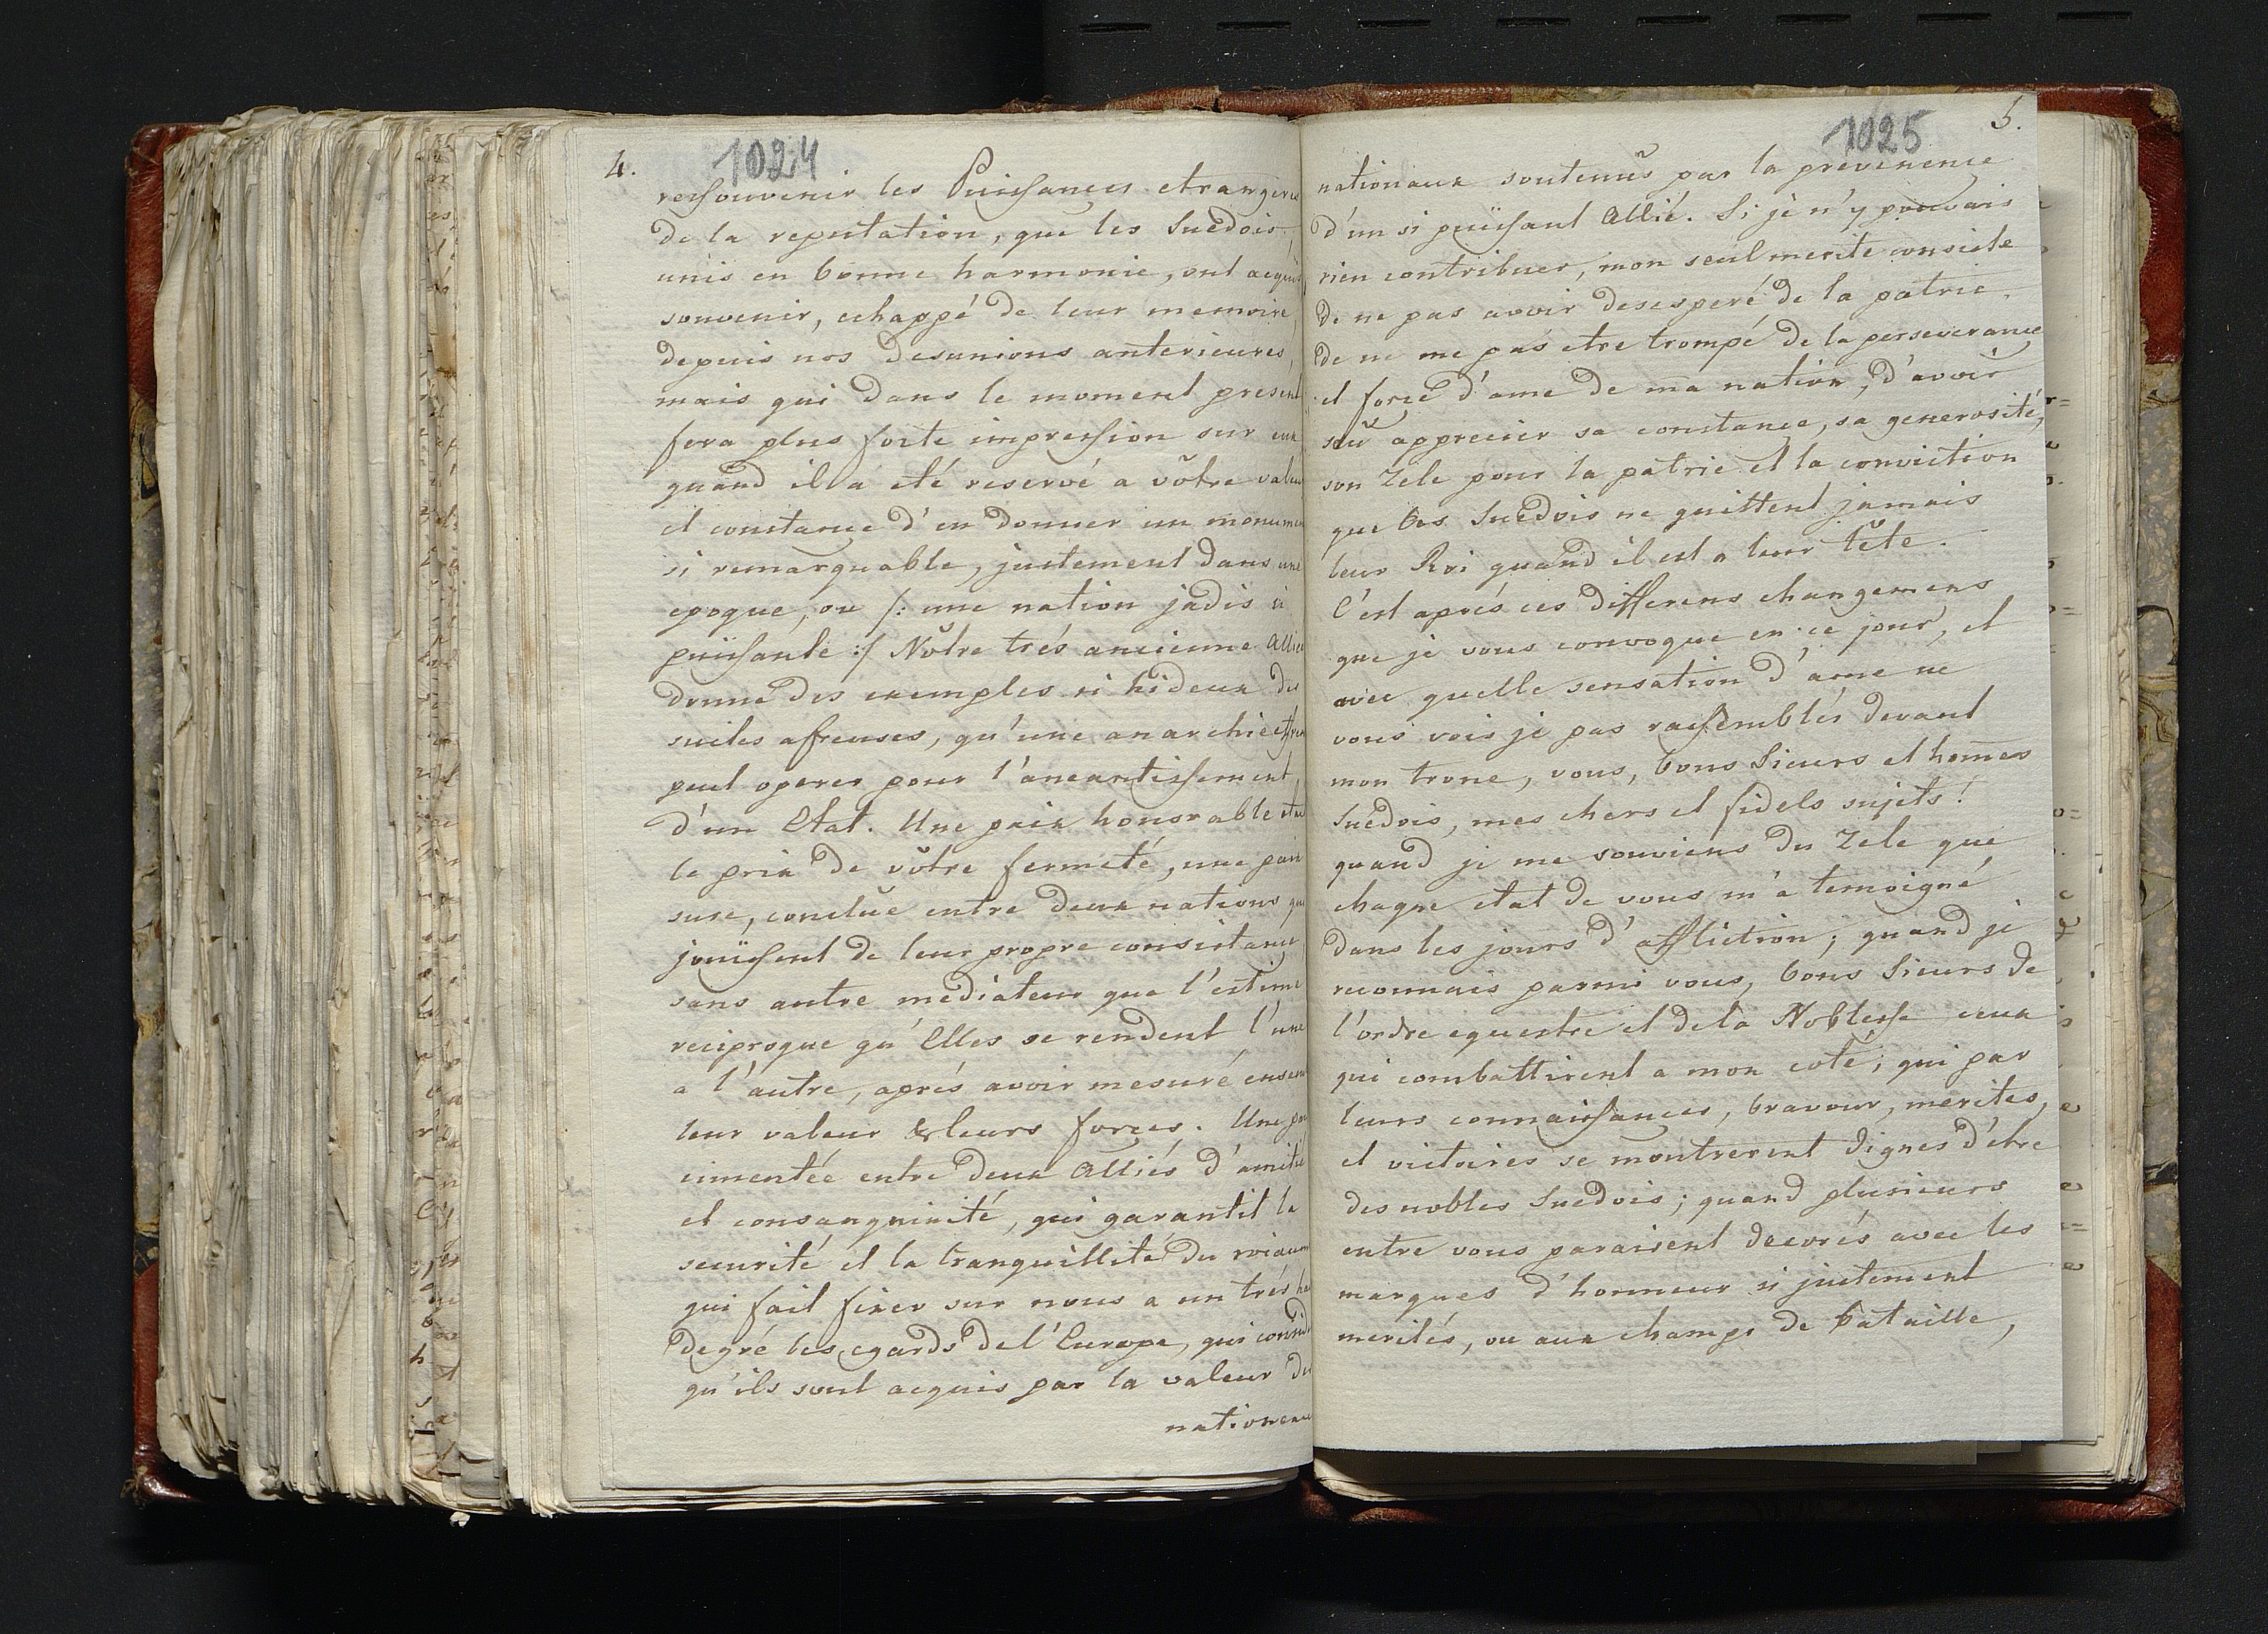 4.
1024
ressouvenir les Puissances etrangeres
de la reputation, que les Suedois,
unis en bonne harmonie, ont acquis,
souvenir, echappé de leur memoire,
depuis nos desunions anterieures,
mais qui dans le moment present
fera plus forte impression sur eux
quand il a eté reservé a vôtre valeur
et constance d'en donner un monument
si remarquable, justement dans une
epoque, ou /: une nation jadis si
puissante :/ Nôtre trés ancienne Alliée
donne des exemples si hideux des
suites afreuses, qu'une anarchie
peut operer pour l'aneantissement
d'un Etat. Une paix honorable
le prix de vôtre fermeté, une paix
sure, conclue entre deux nations qui
jouissent de leur propre consistance,
sans autre mediateur que l'estime
reciproque qu'Elles se rendent l'une
a l'autre, aprés avoir mesuré
leur valeur & leurs forces. Une
cimentée entre deux Alliés d'amitié
et consanguinité, qui garantit la
securité et la tranquillité du roiaume
qui fait fixer sur nous a un trés
degré les egards de l'Europe, qui
qu'ils sont acquis par la valeur des
nationaux
1025
5.
nationaux soutenûs par la prevenence
d'un si puissant Allié. Si je n'y pouvais
rien contribuer, mon seul merite consiste
de ne pas avoir desesperé de la patrie,
de ne me pas etre trompé de la perseverance
et force d'ame de ma nation, d'avoir
sçû apprecier sa constance, sa generosité,
son Zele pour la patrie et la conviction
que les Suedois ne quittent jamais
leur Roi quand il est a leur tête.
C'est aprés ces differens changemens
que je vous convoque en ce jour, et
avec quelle sensation d'ame ne
vous vois je pas rassemblés devant
mon trone, vous, bons Sieurs et homes
Suedois, mes chers et fidels sujets!
quand je me souviens du Zele que
chaque etat de vous m'a temoigné
dans les jours d'affliction; quand je
reconnais parmi vous, bons Sieurs de
l'ordre equestre et de la Noblesse ceux
qui combattirent a mon coté, qui par
leurs connaissances, bravour, merites,
et victoires se montrerent dignes d'etre
des nobles Suedois; quand plusieurs
entre vous paraissent decorés avec les
marques d'honneur si justement
merités, ou aux champs de bataille,